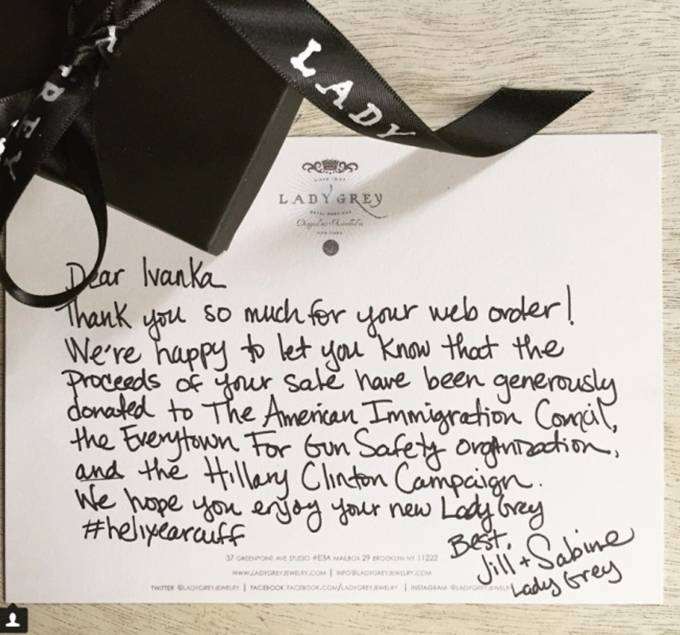 LADY
REY
LADY GREY
Dear Ivanka
Thank you so much for your web order!
We're happy to let you know that the
Proceeds of your sale have been generously
donated to The American Immigration Council,
the Everytown For Gun Safety organization,
and the Hillary Clinton Campaign.
We hope you enjoy your new Lady Grey
#helixearcuff
Best,
Jill + Sabine
Lady Grey
37 GREENPOINT AVE STUDIO #E3A MAILBOX 29 BROOKLYN NY 11222
WWW.LADYGREYJEWELRY.COM | INFO@LADYGREYJEWELRY.COM
TWITTER @LADYGREYJEWELRY | FACEBOOK FACEBOOK.COM/LADYGREYJEWELRY | INSTAGRAM @LADYGREYJEWELR